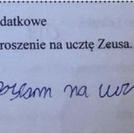 datkowe
roszenie na ucztę Zeusa.
na